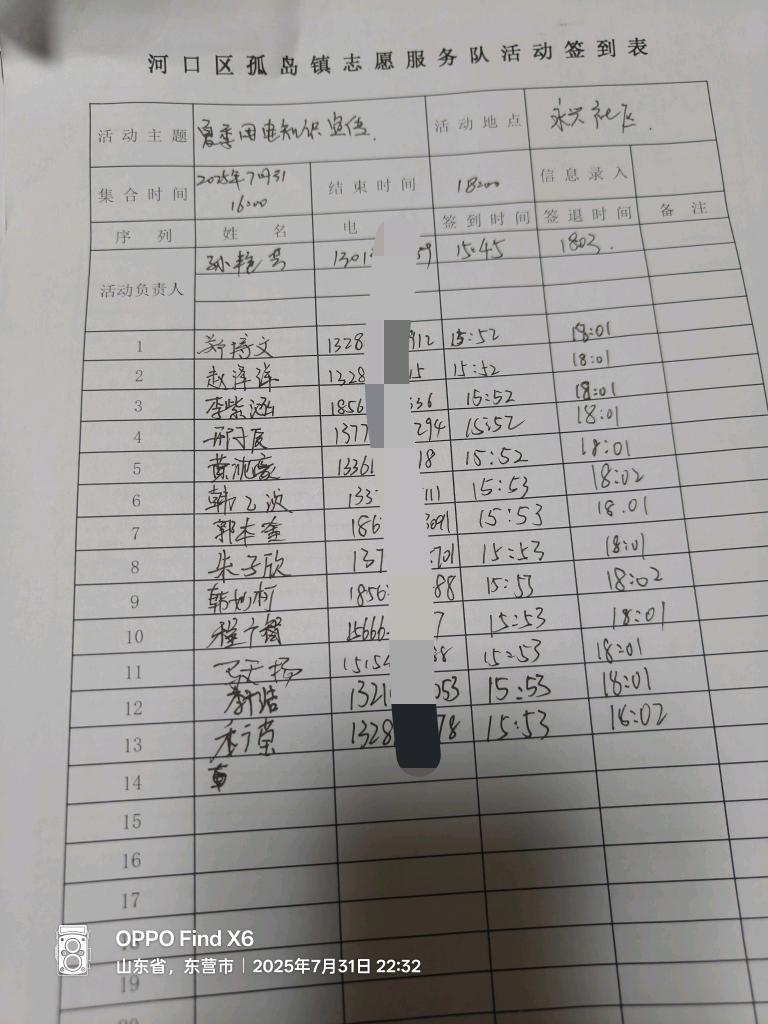 河口区孤岛镇志愿服务队活动签到表
活动主题 夏季用电知识宣传. 活动地点 永兴社区.
集合时间 2025年7月31 16:00 结束时间 18:00 信息录入
序列 姓名 电 签到时间 签退时间 备注
活动负责人 孙艳 1301 59 15:45 1803.
1 郭文 1328 912 15:52 18:01
2 赵泽洋 1328 15 15:52 18:01
3 李紫涵 1856 536 15:52 18:01
4 邢 1377 294 15:52 18:01
5 黄 13361 18 15:52 18:01
6 韩 133 111 15:53 18:02
7 郭本奎 186 3091 15:53 18.01
8 朱子欣 137 701 15:53 18:01
9 韩柯 1856 88 15:53 18:02
10 程 15666 7 15:53 18:01
11 15154 15:53 18:01
12 1321 053 15:53 18:01
13 1328 78 15:53 16:02
14
15
16
17
19
OPPO Find X6
山东省，东营市 | 2025年7月31日 22:32